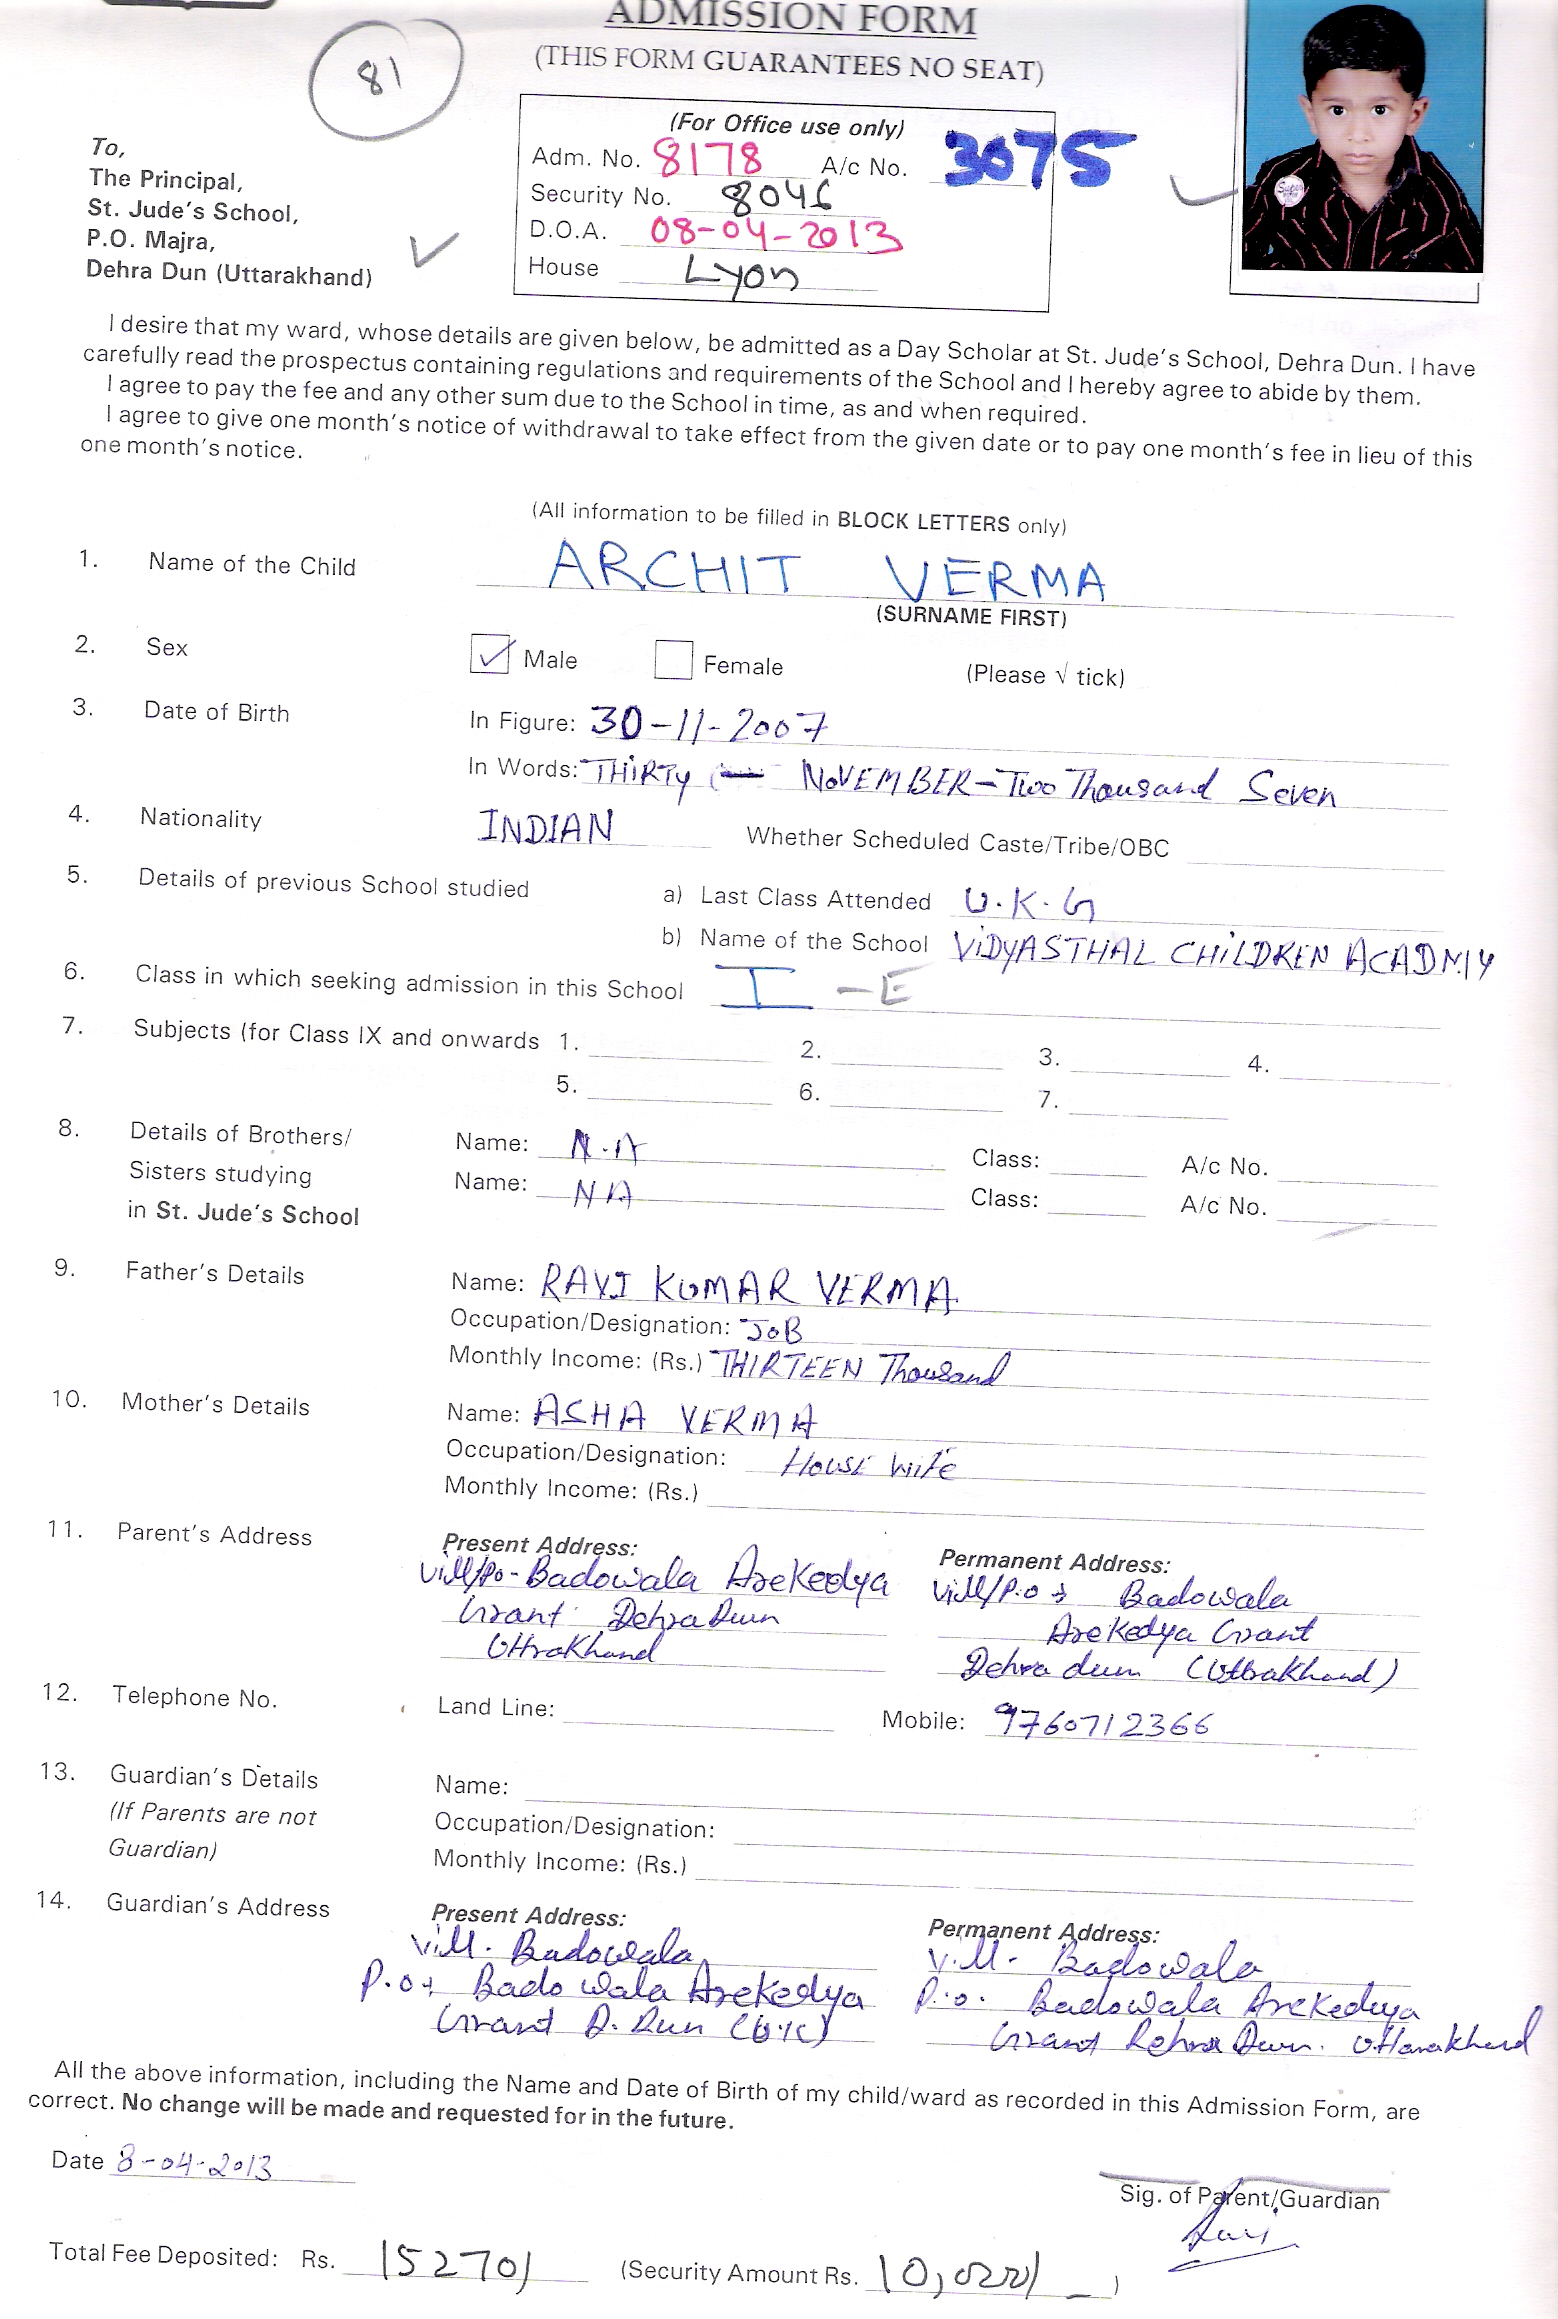 ADMISSION FORM
(THIS FORM GUARANTEES NO SEAT)
81
(For Office use only)
Adm. No. 8178 A/c No. 3075
Security No. 8046
D.O.A. 08-04-2013
House Lyon
To,
The Principal,
St. Jude's School,
P.O. Majra,
Dehra Dun (Uttarakhand)
I desire that my ward, whose details are given below, be admitted as a Day Scholar at St. Jude's School, Dehra Dun. I have
carefully read the prospectus containing regulations and requirements of the School and I hereby agree to abide by them.
I agree to pay the fee and any other sum due to the School in time, as and when required.
I agree to give one month's notice of withdrawal to take effect from the given date or to pay one month's fee in lieu of this
one month's notice.
(All information to be filled in BLOCK LETTERS only)
1. Name of the Child ARCHIT VERMA
(SURNAME FIRST)
2. Sex ✓ Male Female (Please √ tick)
3. Date of Birth In Figure: 30-11-2007
In Words: THIRTY NOVEMBER-Two Thousand Seven
4. Nationality INDIAN Whether Scheduled Caste/Tribe/OBC
5. Details of previous School studied a) Last Class Attended U.K.G
b) Name of the School VIDYASTHAL CHILDREN ACADMIY
6. Class in which seeking admission in this School I -E
7. Subjects (for Class IX and onwards 1. 2. 3. 4.
5. 6. 7.
8. Details of Brothers/ Name: N.A Class: A/c No.
Sisters studying Name: NA Class: A/c No.
in St. Jude's School
9. Father's Details Name: RAVI KUMAR VERMA
Occupation/Designation: JOB
Monthly Income: (Rs.) THIRTEEN Thousand
10. Mother's Details Name: ASHA VERMA
Occupation/Designation: House wife
Monthly Income: (Rs.)
11. Parent's Address Present Address: Permanent Address:
Vill/Po- Badowala Arekedya Vill/P.o → Badowala
Grant Dehra Dun Arekedya Grant
Uttrakhand Dehra dun (Uttrakhand)
12. Telephone No. Land Line: Mobile: 9760712366
13. Guardian's Details Name:
(If Parents are not Occupation/Designation:
Guardian) Monthly Income: (Rs.)
14. Guardian's Address Present Address: Permanent Address:
Vill. Badowala Vill- Badowala
P.o → Badowala Arekedya P.o. Badowala Arekedya
Grant D.Dun (U.K) Grant Dehra Dun. Uttarakhand
All the above information, including the Name and Date of Birth of my child/ward as recorded in this Admission Form, are
correct. No change will be made and requested for in the future.
Date 8-04-2013
Sig. of Parent/Guardian
Ravi
Total Fee Deposited: Rs. 15270/ (Security Amount Rs. 10,000/_)